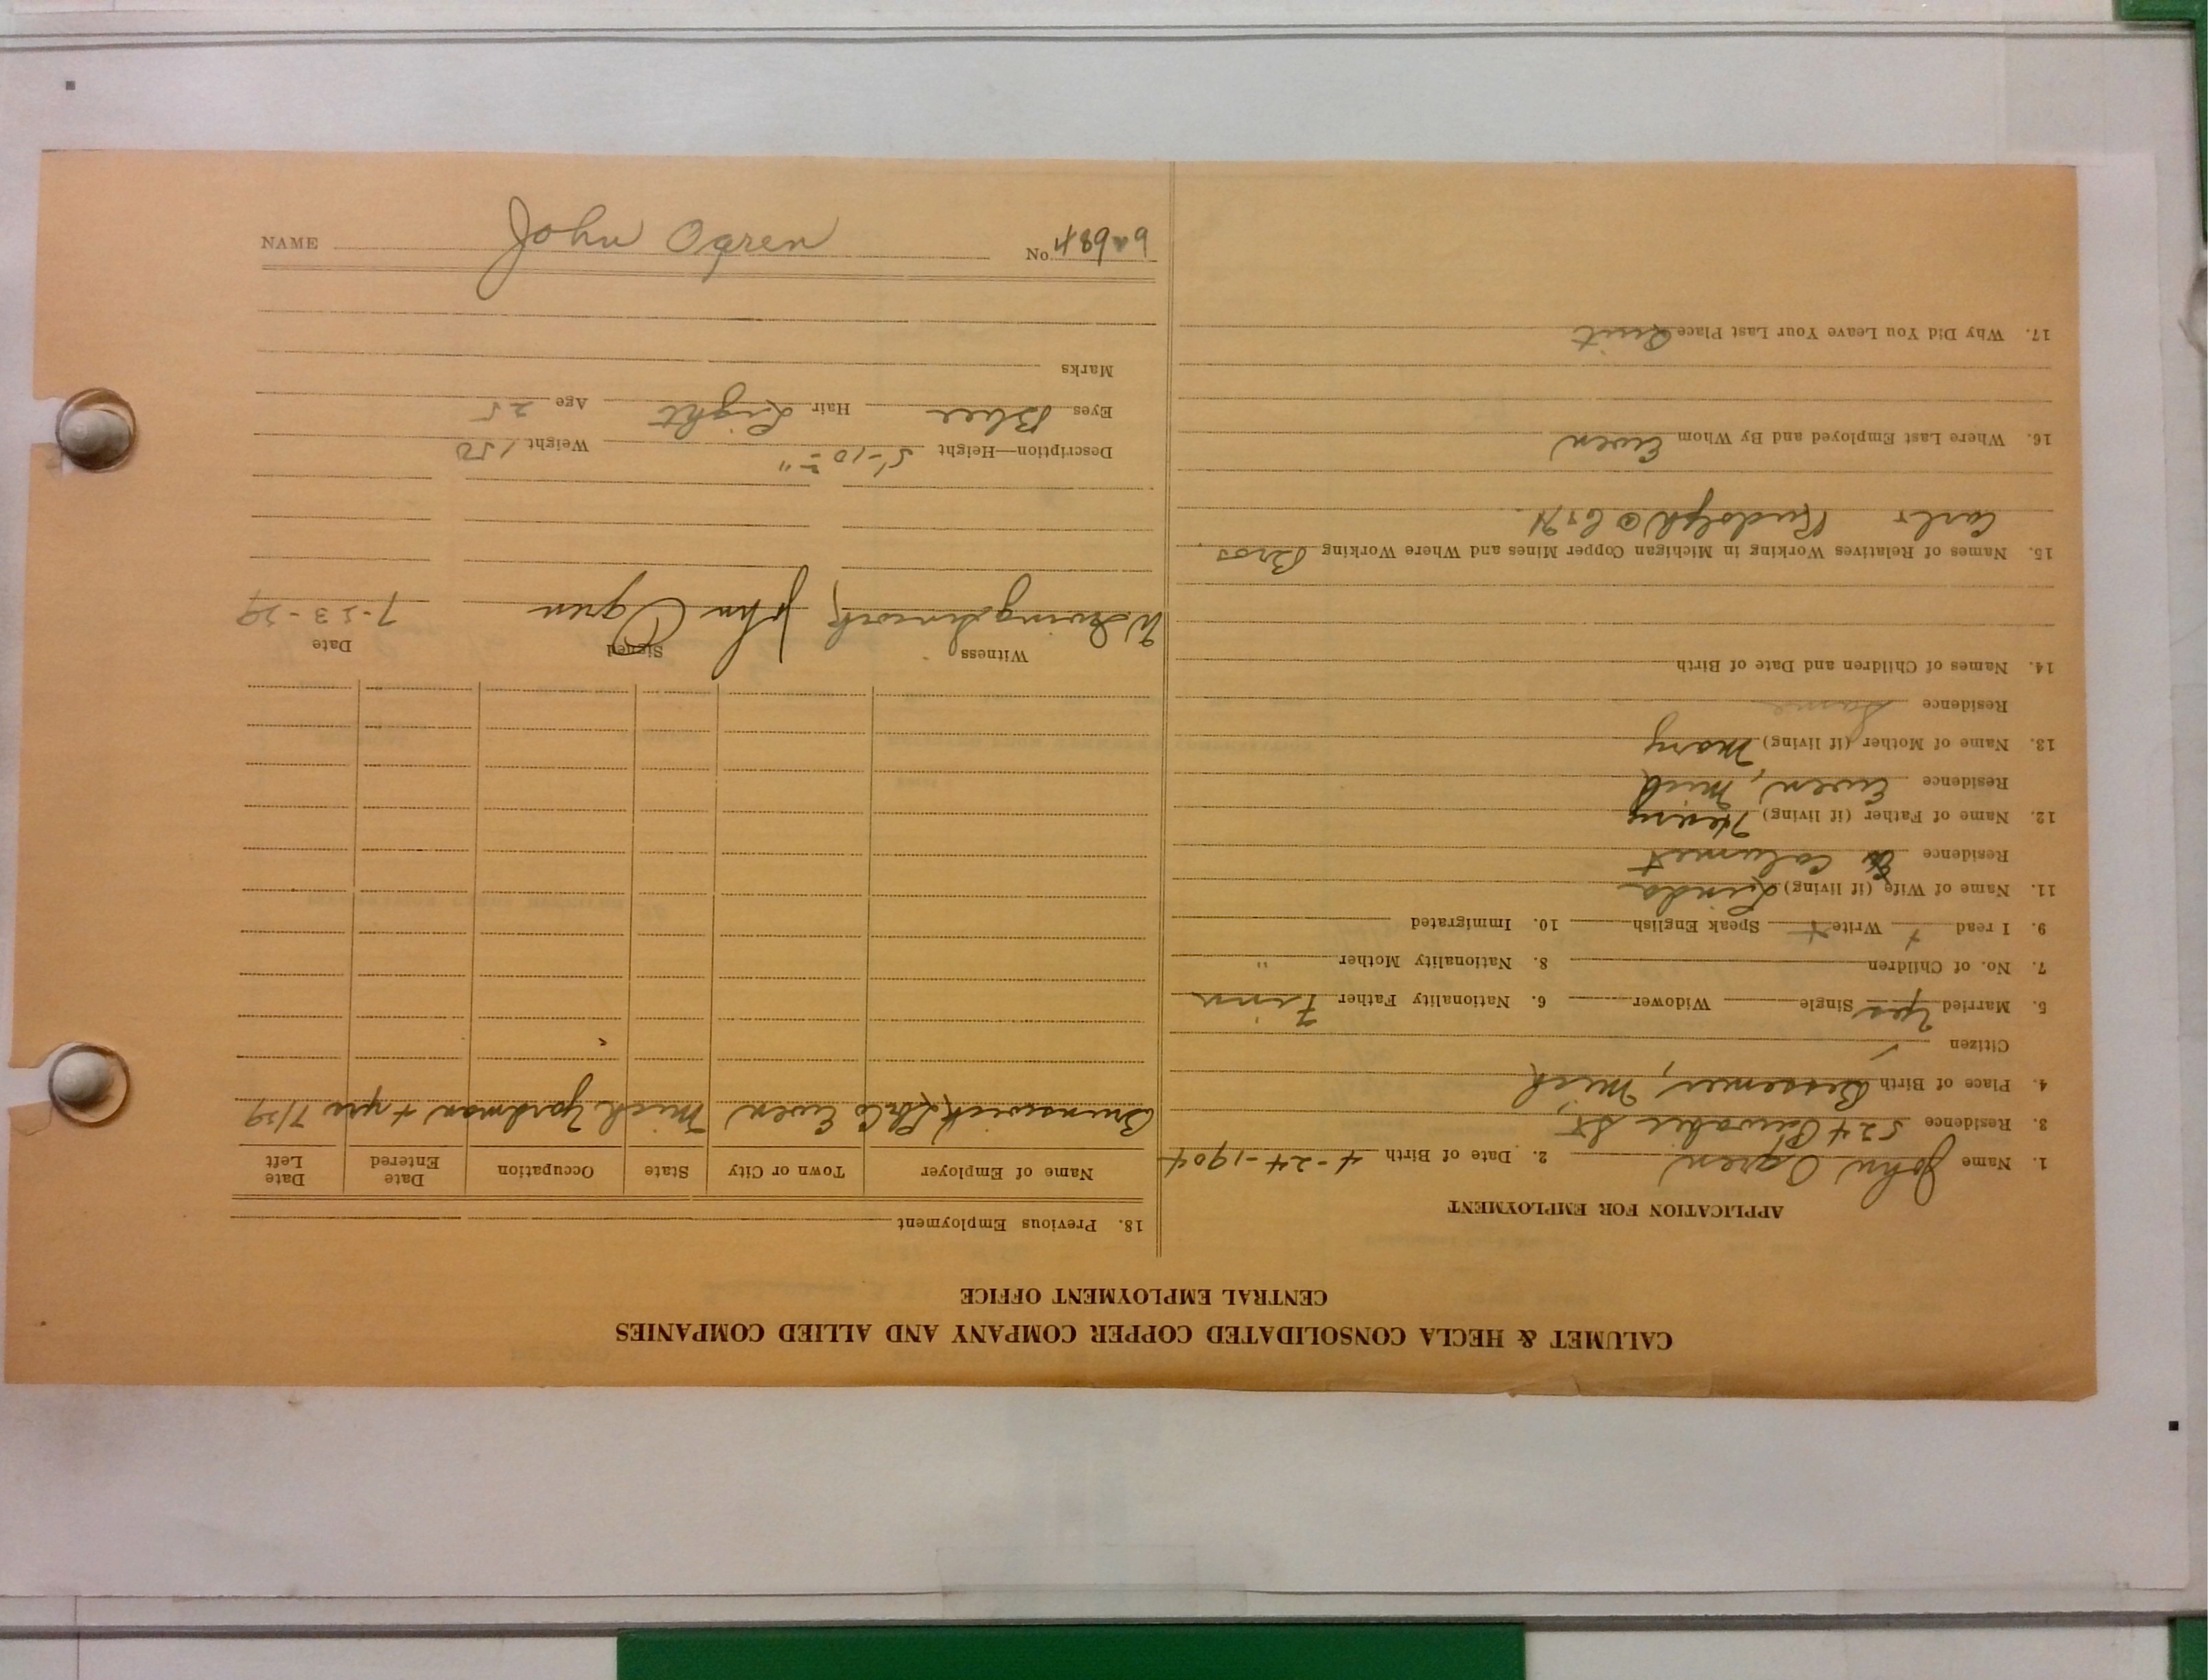 CALUMET & HECLA CONSOLIDATED COPPER COMPANY AND ALLIED COMPANIES
CENTRAL EMPLOYMENT OFFICE
APPLICATION FOR EMPLOYMENT
1. Name John Ogren 2. Date of Birth 4-24-1904
3. Residence 524 Pewabic St
4. Place of Birth Bessemer, Mich
Citizen
5. Married Yes Single Widower 6. Nationality Father Finn
7. No. of Children 8. Nationality Mother "
9. I read + Write + Speak English 10. Immigrated
11. Name of Wife (if living) Linda
Residence Calumet
12. Name of Father (if living) Henry
Residence Ewen, Mich
13. Name of Mother (if living) Mary
Residence Same
14. Names of Children and Date of Birth
15. Names of Relatives Working in Michigan Copper Mines and Where Working Bros.
Carl + Rudolph @ C+H
16. Where Last Employed and By Whom Ewen
17. Why Did You Leave Your Last Place Quit
18. Previous Employment
Name of Employer Town or City State Occupation Date Entered Date Left
Brunswick Ewen Mich Yardman 4 yrs 7/29
Witness Signed Date
John Ogren 7-23-29
Description—Height 5'-10" Weight 150
Eyes Blue Hair Light Age 25
Marks
NAME John Ogren No.